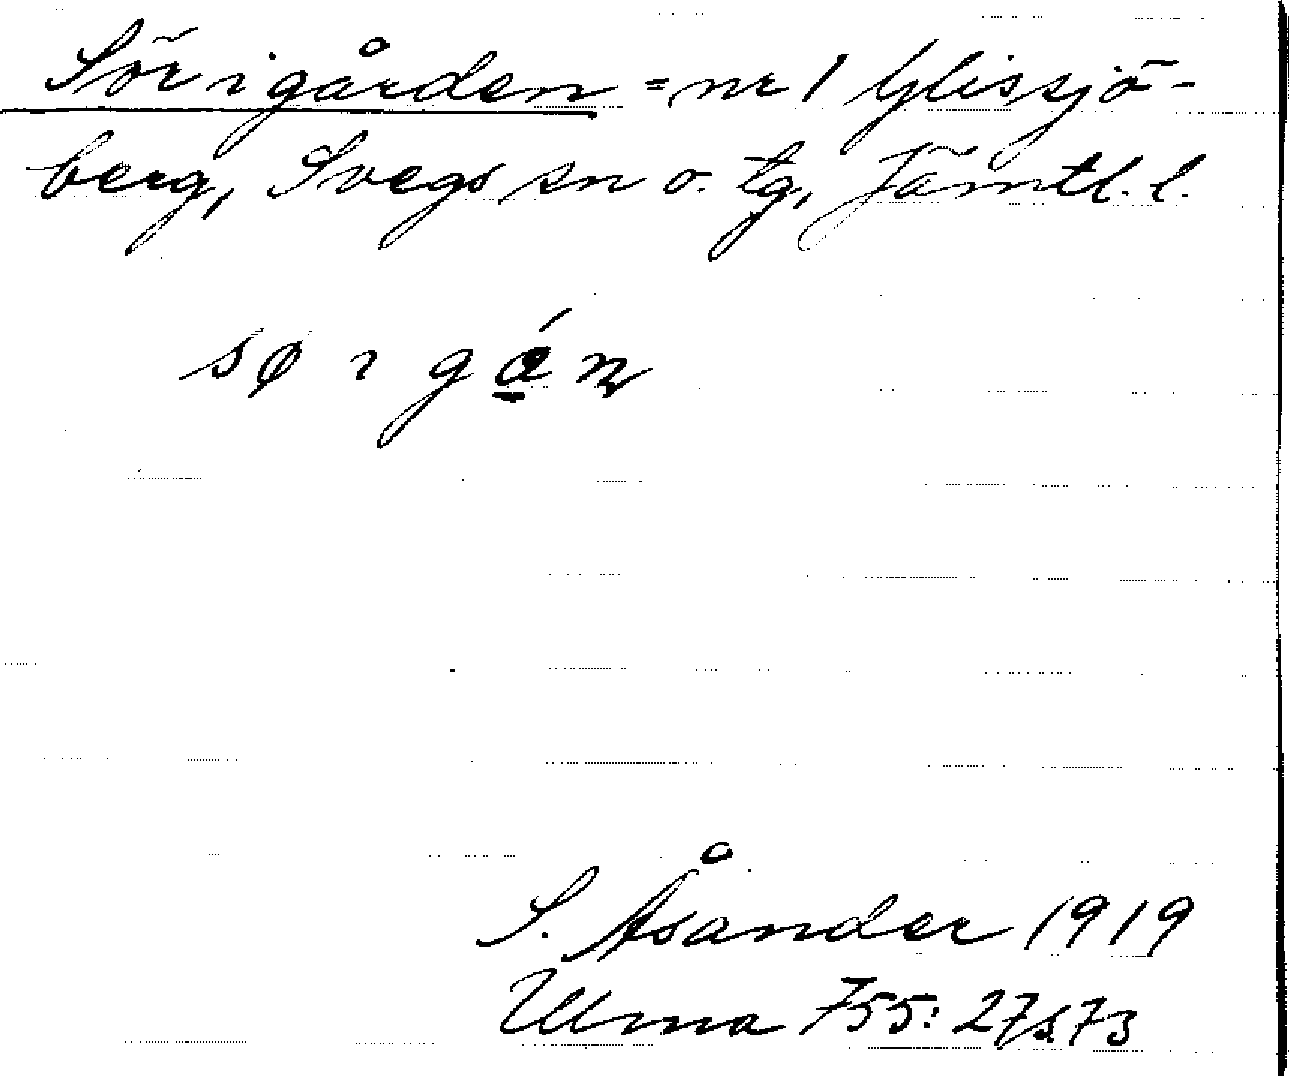 Sör i gården = nr 1 Glissjö-
berg, Svegs sn o. tg, Jämtl. l.
sø ı gán
S. Åsander 1919
Ulma 755: 27 s. 73